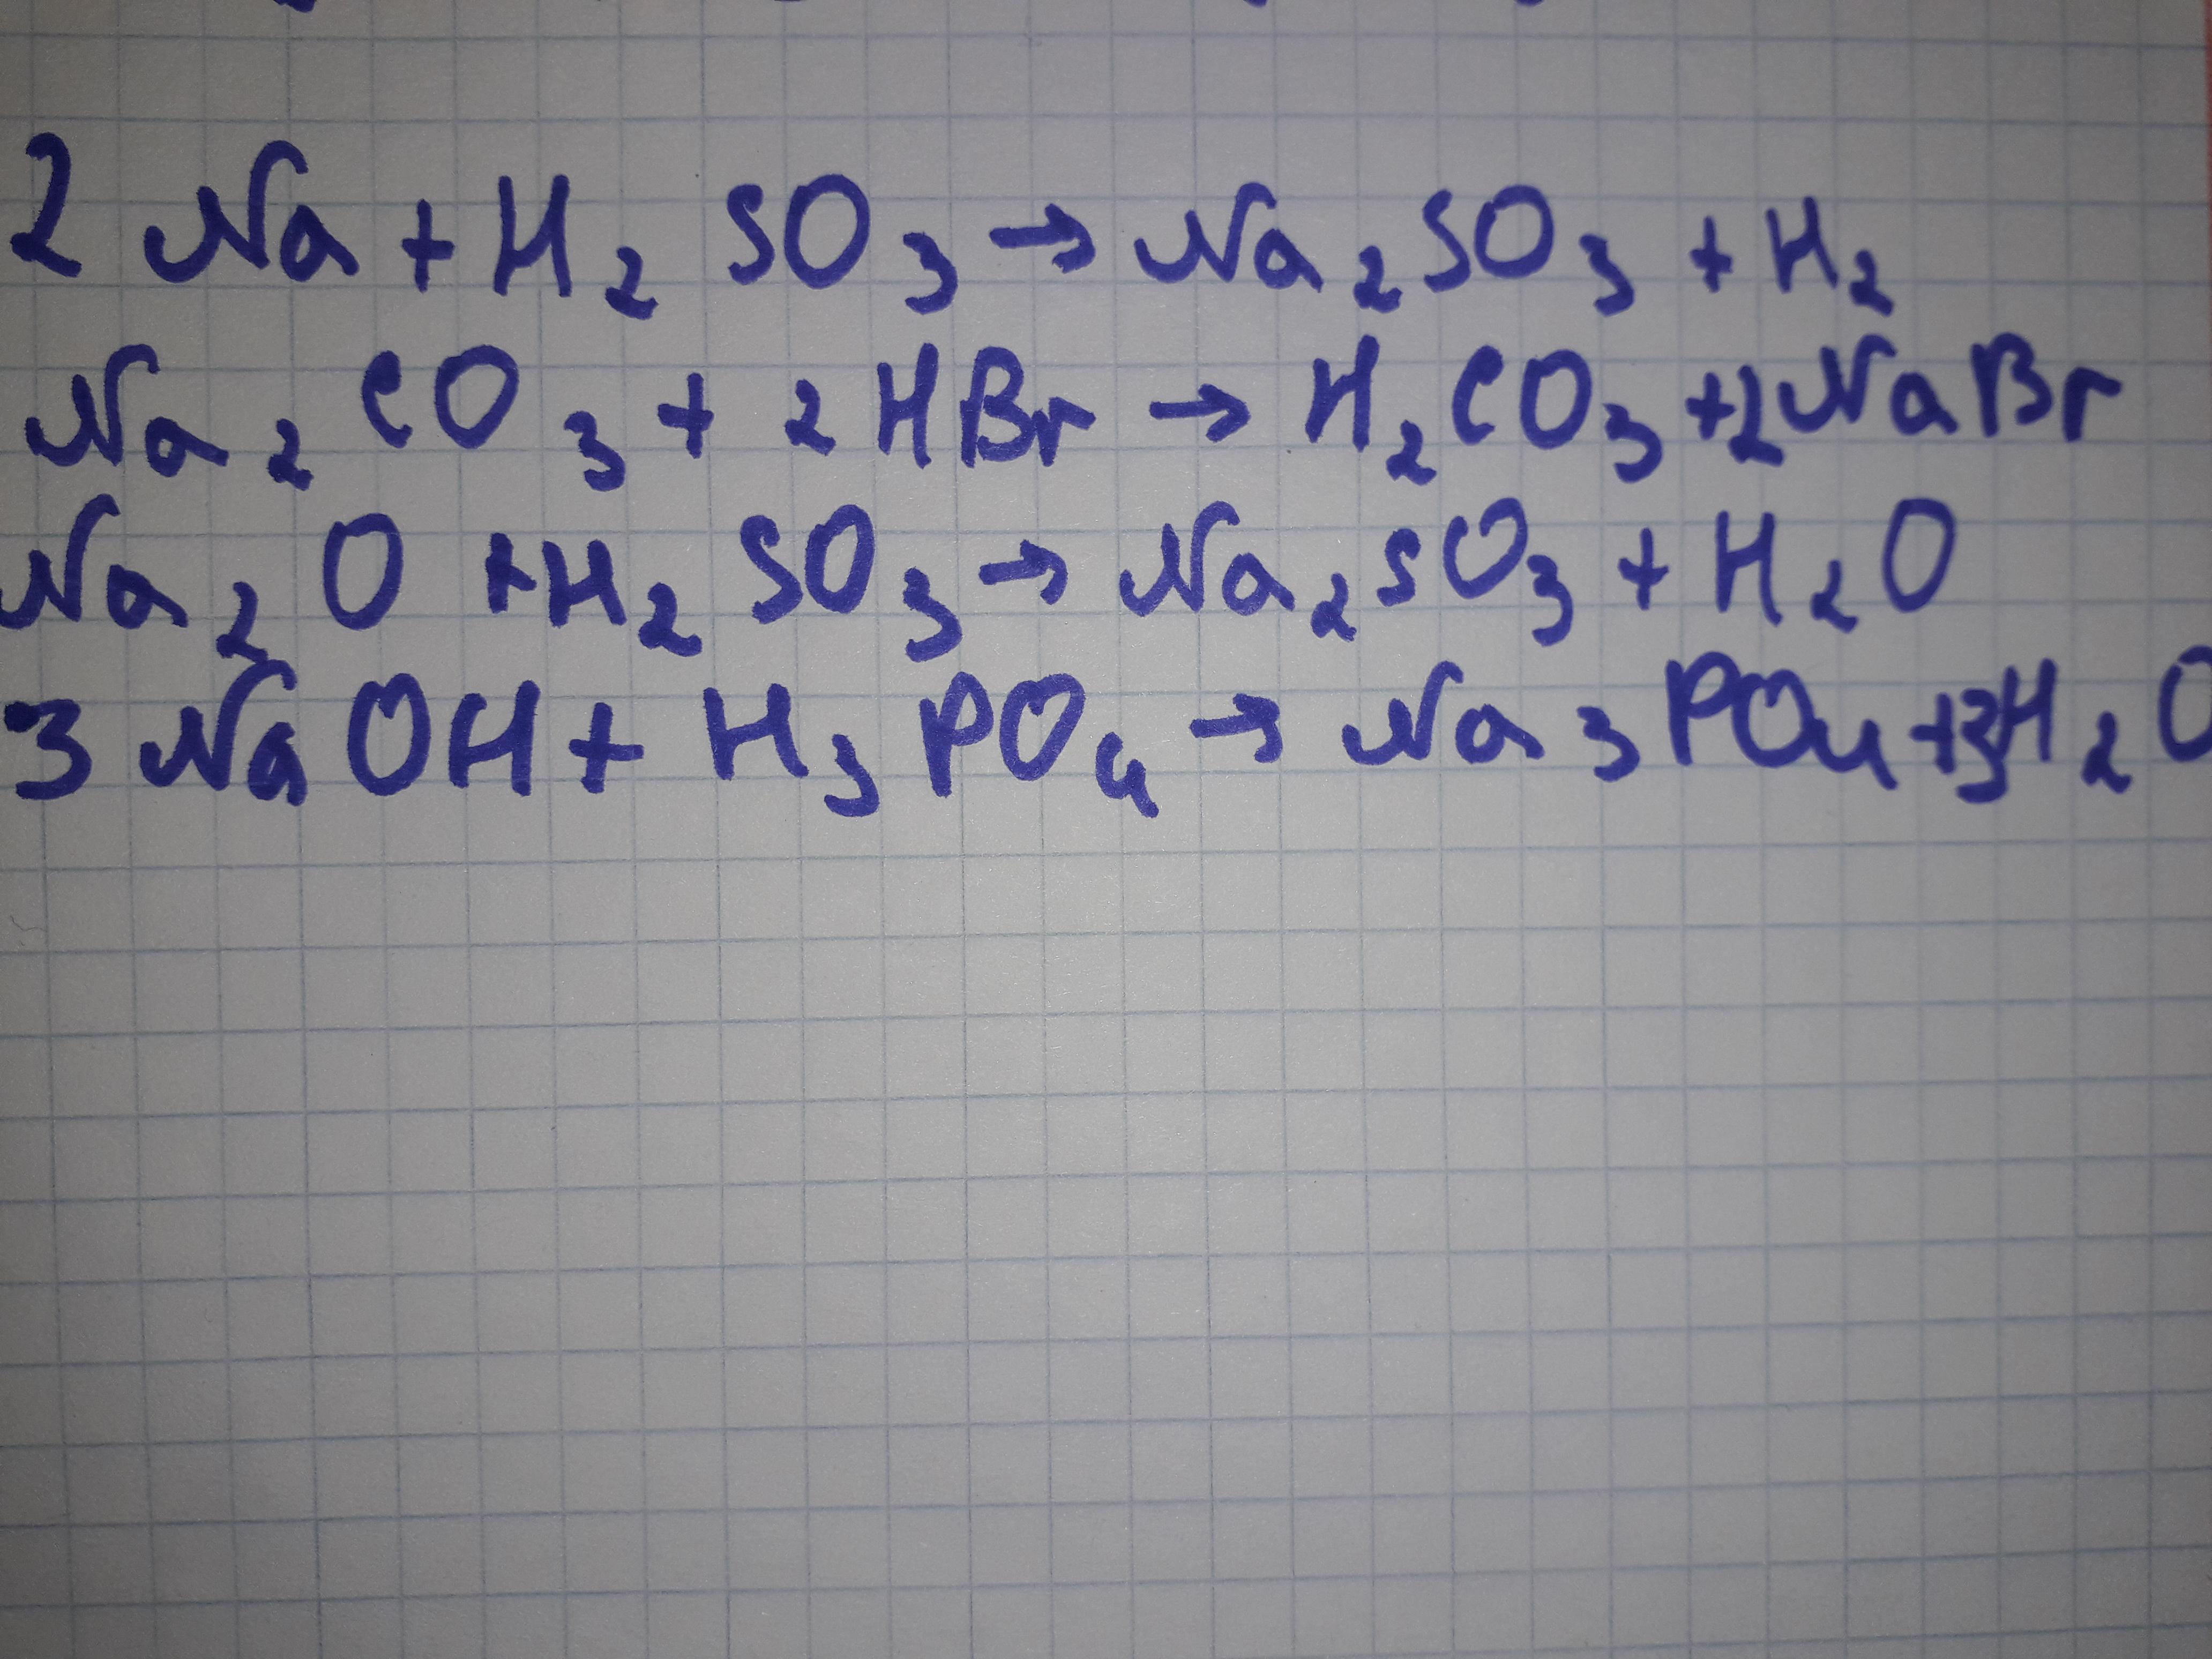 2 Na + H₂ SO₃ → Na₂SO₃ + H₂
Na₂ CO₃ + 2 HBr → H₂CO₃ + 2NaBr
Na₂O + H₂ SO₃ → Na₂SO₃ + H₂O
3 NaOH + H₃PO₄ → Na₃PO₄ + 3H₂O